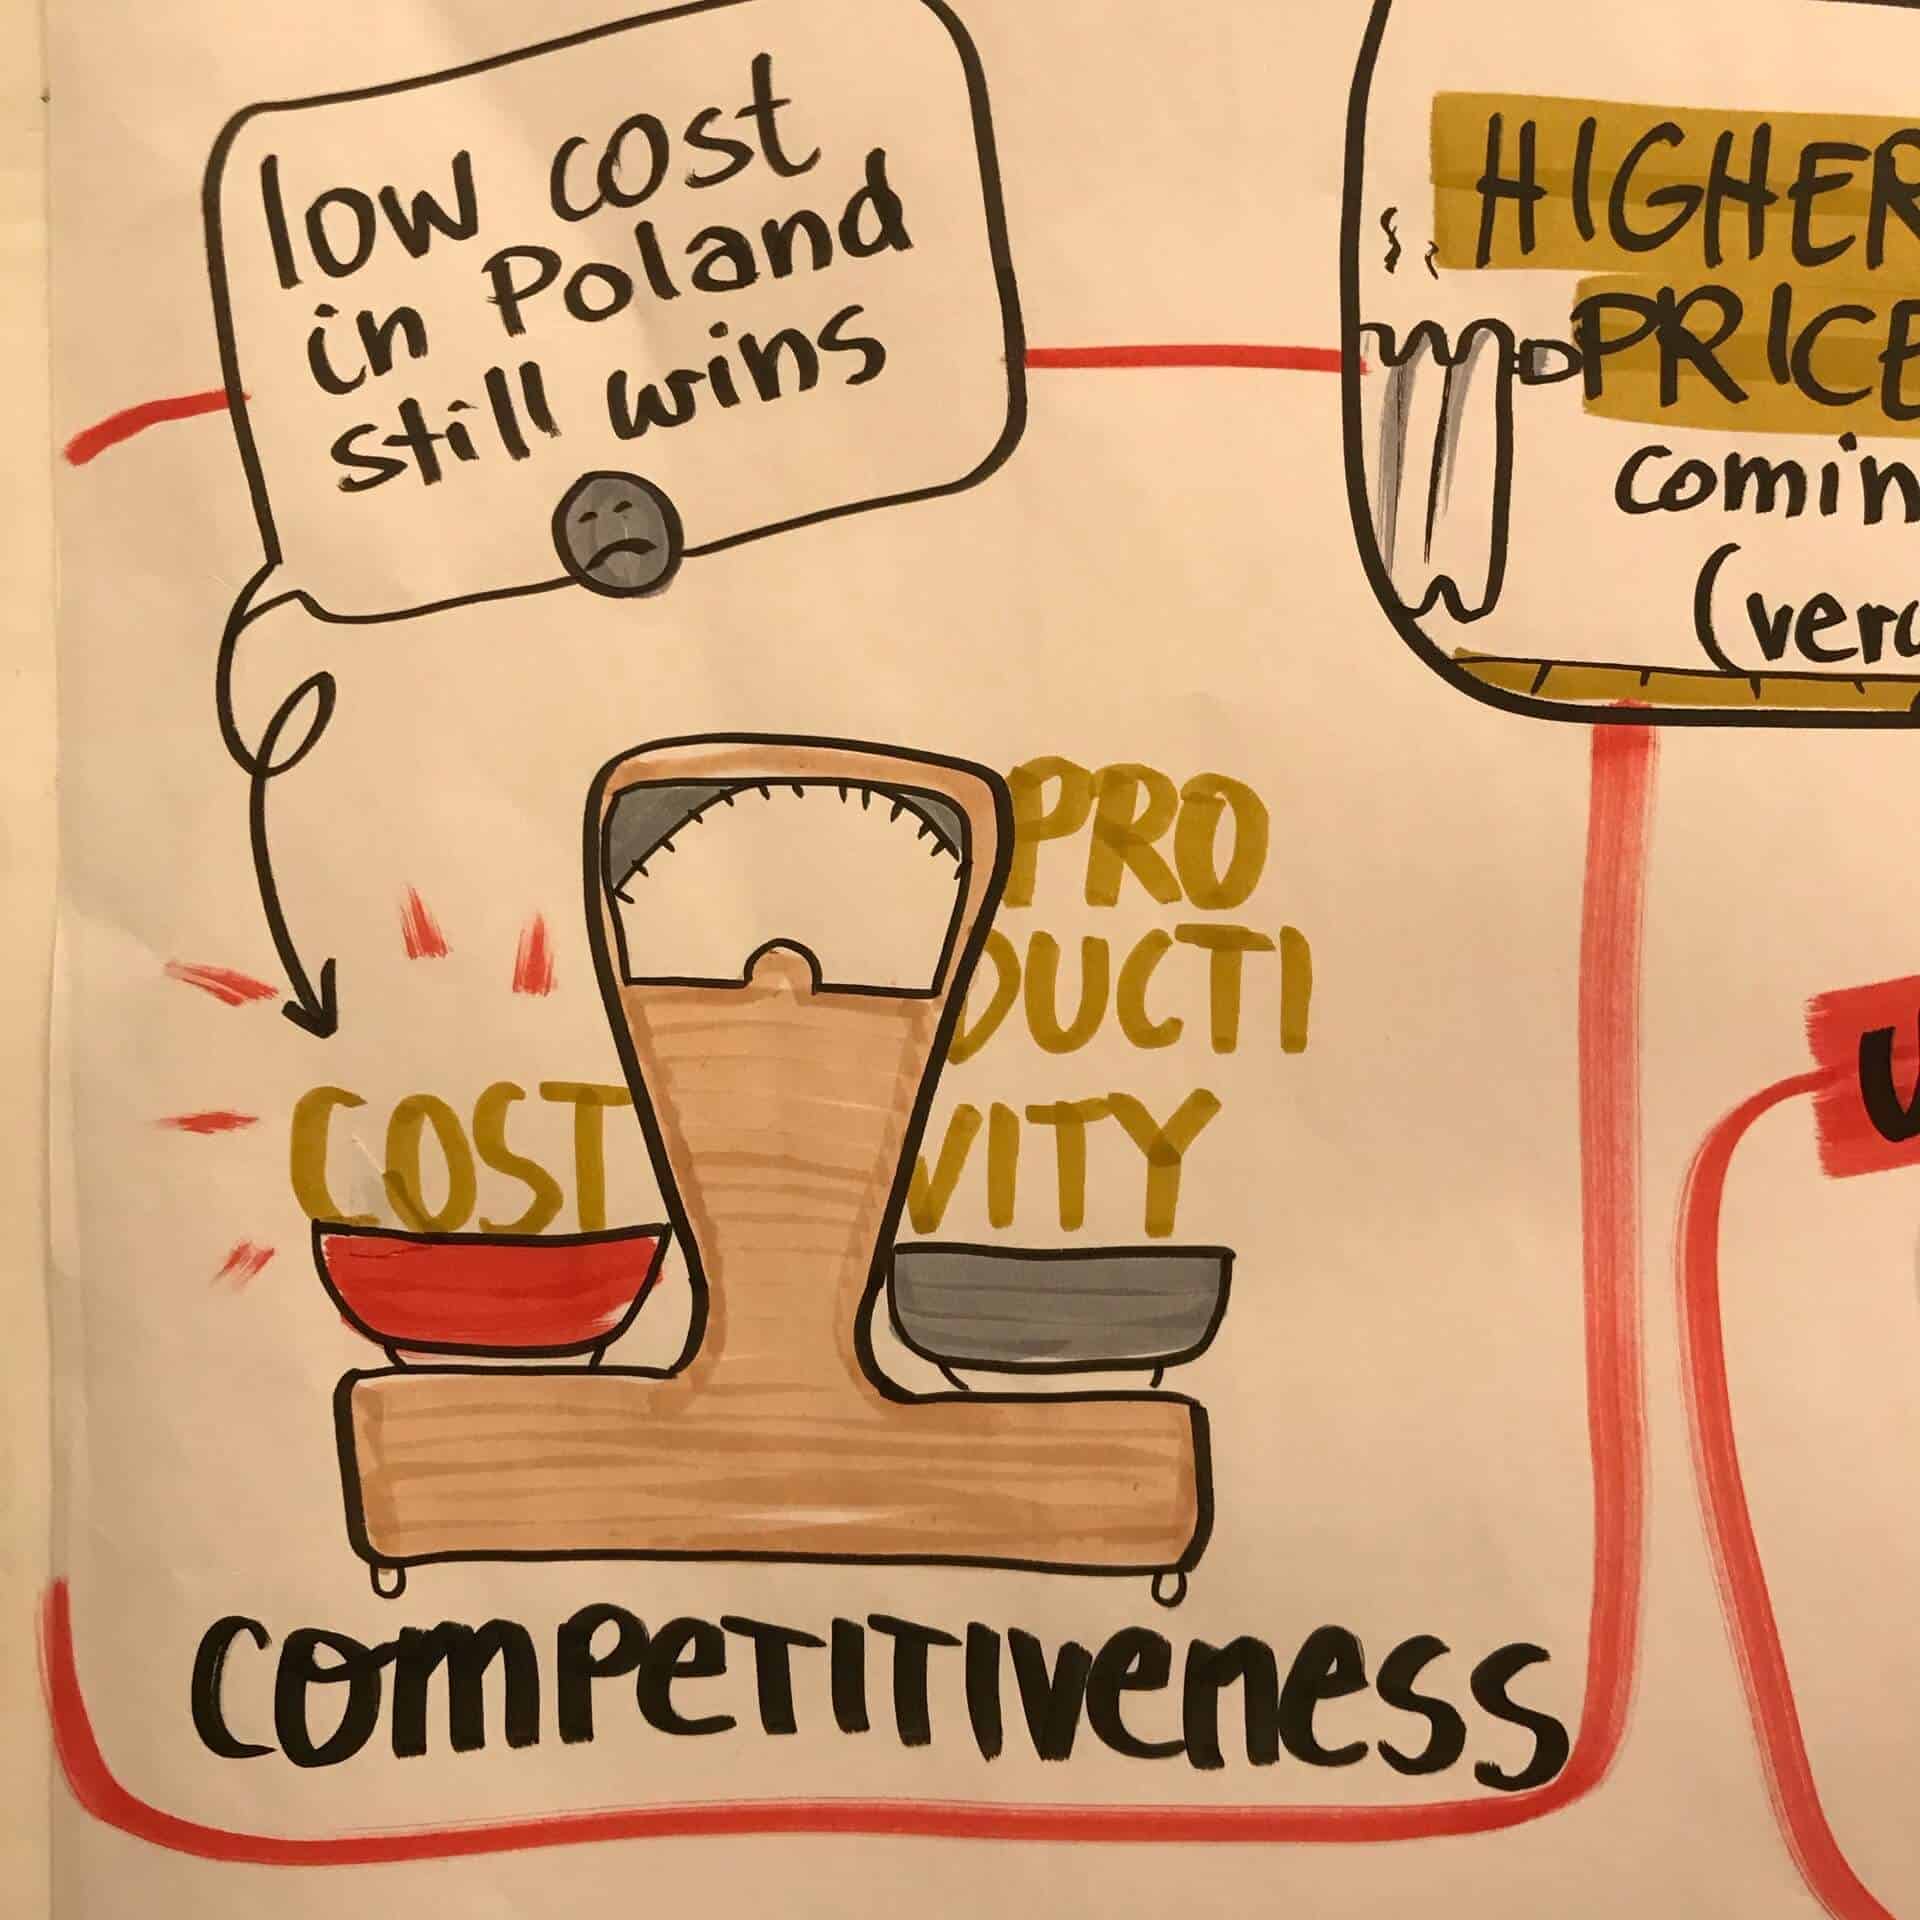 low cost
in Poland
still wins
HIGHER
PRICE
COST
PRO
DUCTI
VITY
COMPETITIVENESS